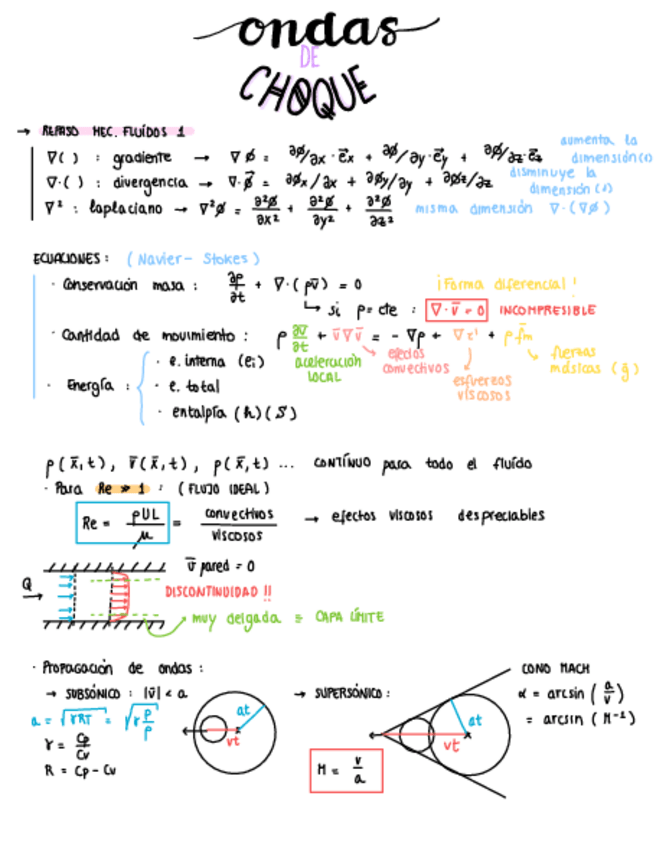 ondas
DE
CHOQUE
→ REPASO MEC. FLUÍDOS 1
∇( ) : gradiente → ∇φ = ∂φ/∂x · e̅x + ∂φ/∂y · e̅y + ∂φ/∂z · e̅z aumenta la dimensión(1)
∇·( ) : divergencia → ∇·φ̅ = ∂φx/∂x + ∂φy/∂y + ∂φz/∂z disminuye la dimensión (1)
∇² : laplaciano → ∇²φ = ∂²φ/∂x² + ∂²φ/∂y² + ∂²φ/∂z² misma dimensión ∇·(∇φ)
ECUACIONES: (Navier - Stokes)
· Conservación masa : ∂ρ/∂t + ∇·(ρv̅) = 0 ¡Forma diferencial!
↳ si ρ = cte : ∇·v̅ = 0 INCOMPRESIBLE
· Cantidad de movimiento : ρ ∂v̅/∂t + v̅∇v̅ = - ∇p + ∇τ' + ρf̅m
aceleración LOCAL
efectos convectivos
esfuerzos viscosos
fuerzas másicas (g̅)
· Energía :
· e. interna (ei)
· e. total
· entalpía (h) (S)
ρ(x̅,t), v̅(x̅,t), p(x̅,t) ... CONTÍNUO para todo el fluído
· Para Re ≫ 1 : (FLUJO IDEAL)
Re = ρUL/μ = convectivos/viscosos → efectos viscosos despreciables
v̅ pared = 0
Q
DISCONTINUIDAD !!
muy delgada ≡ CAPA LÍMITE
· Propagación de ondas :
→ SUBSÓNICO : |v̅| < a
a = √γRT = √γ p/ρ
γ = Cp/Cv
R = Cp - Cv
at
vt
→ SUPERSÓNICO :
M = v/a
at
vt
CONO MACH
α = arcsin (a/v)
= arcsin (M⁻¹)